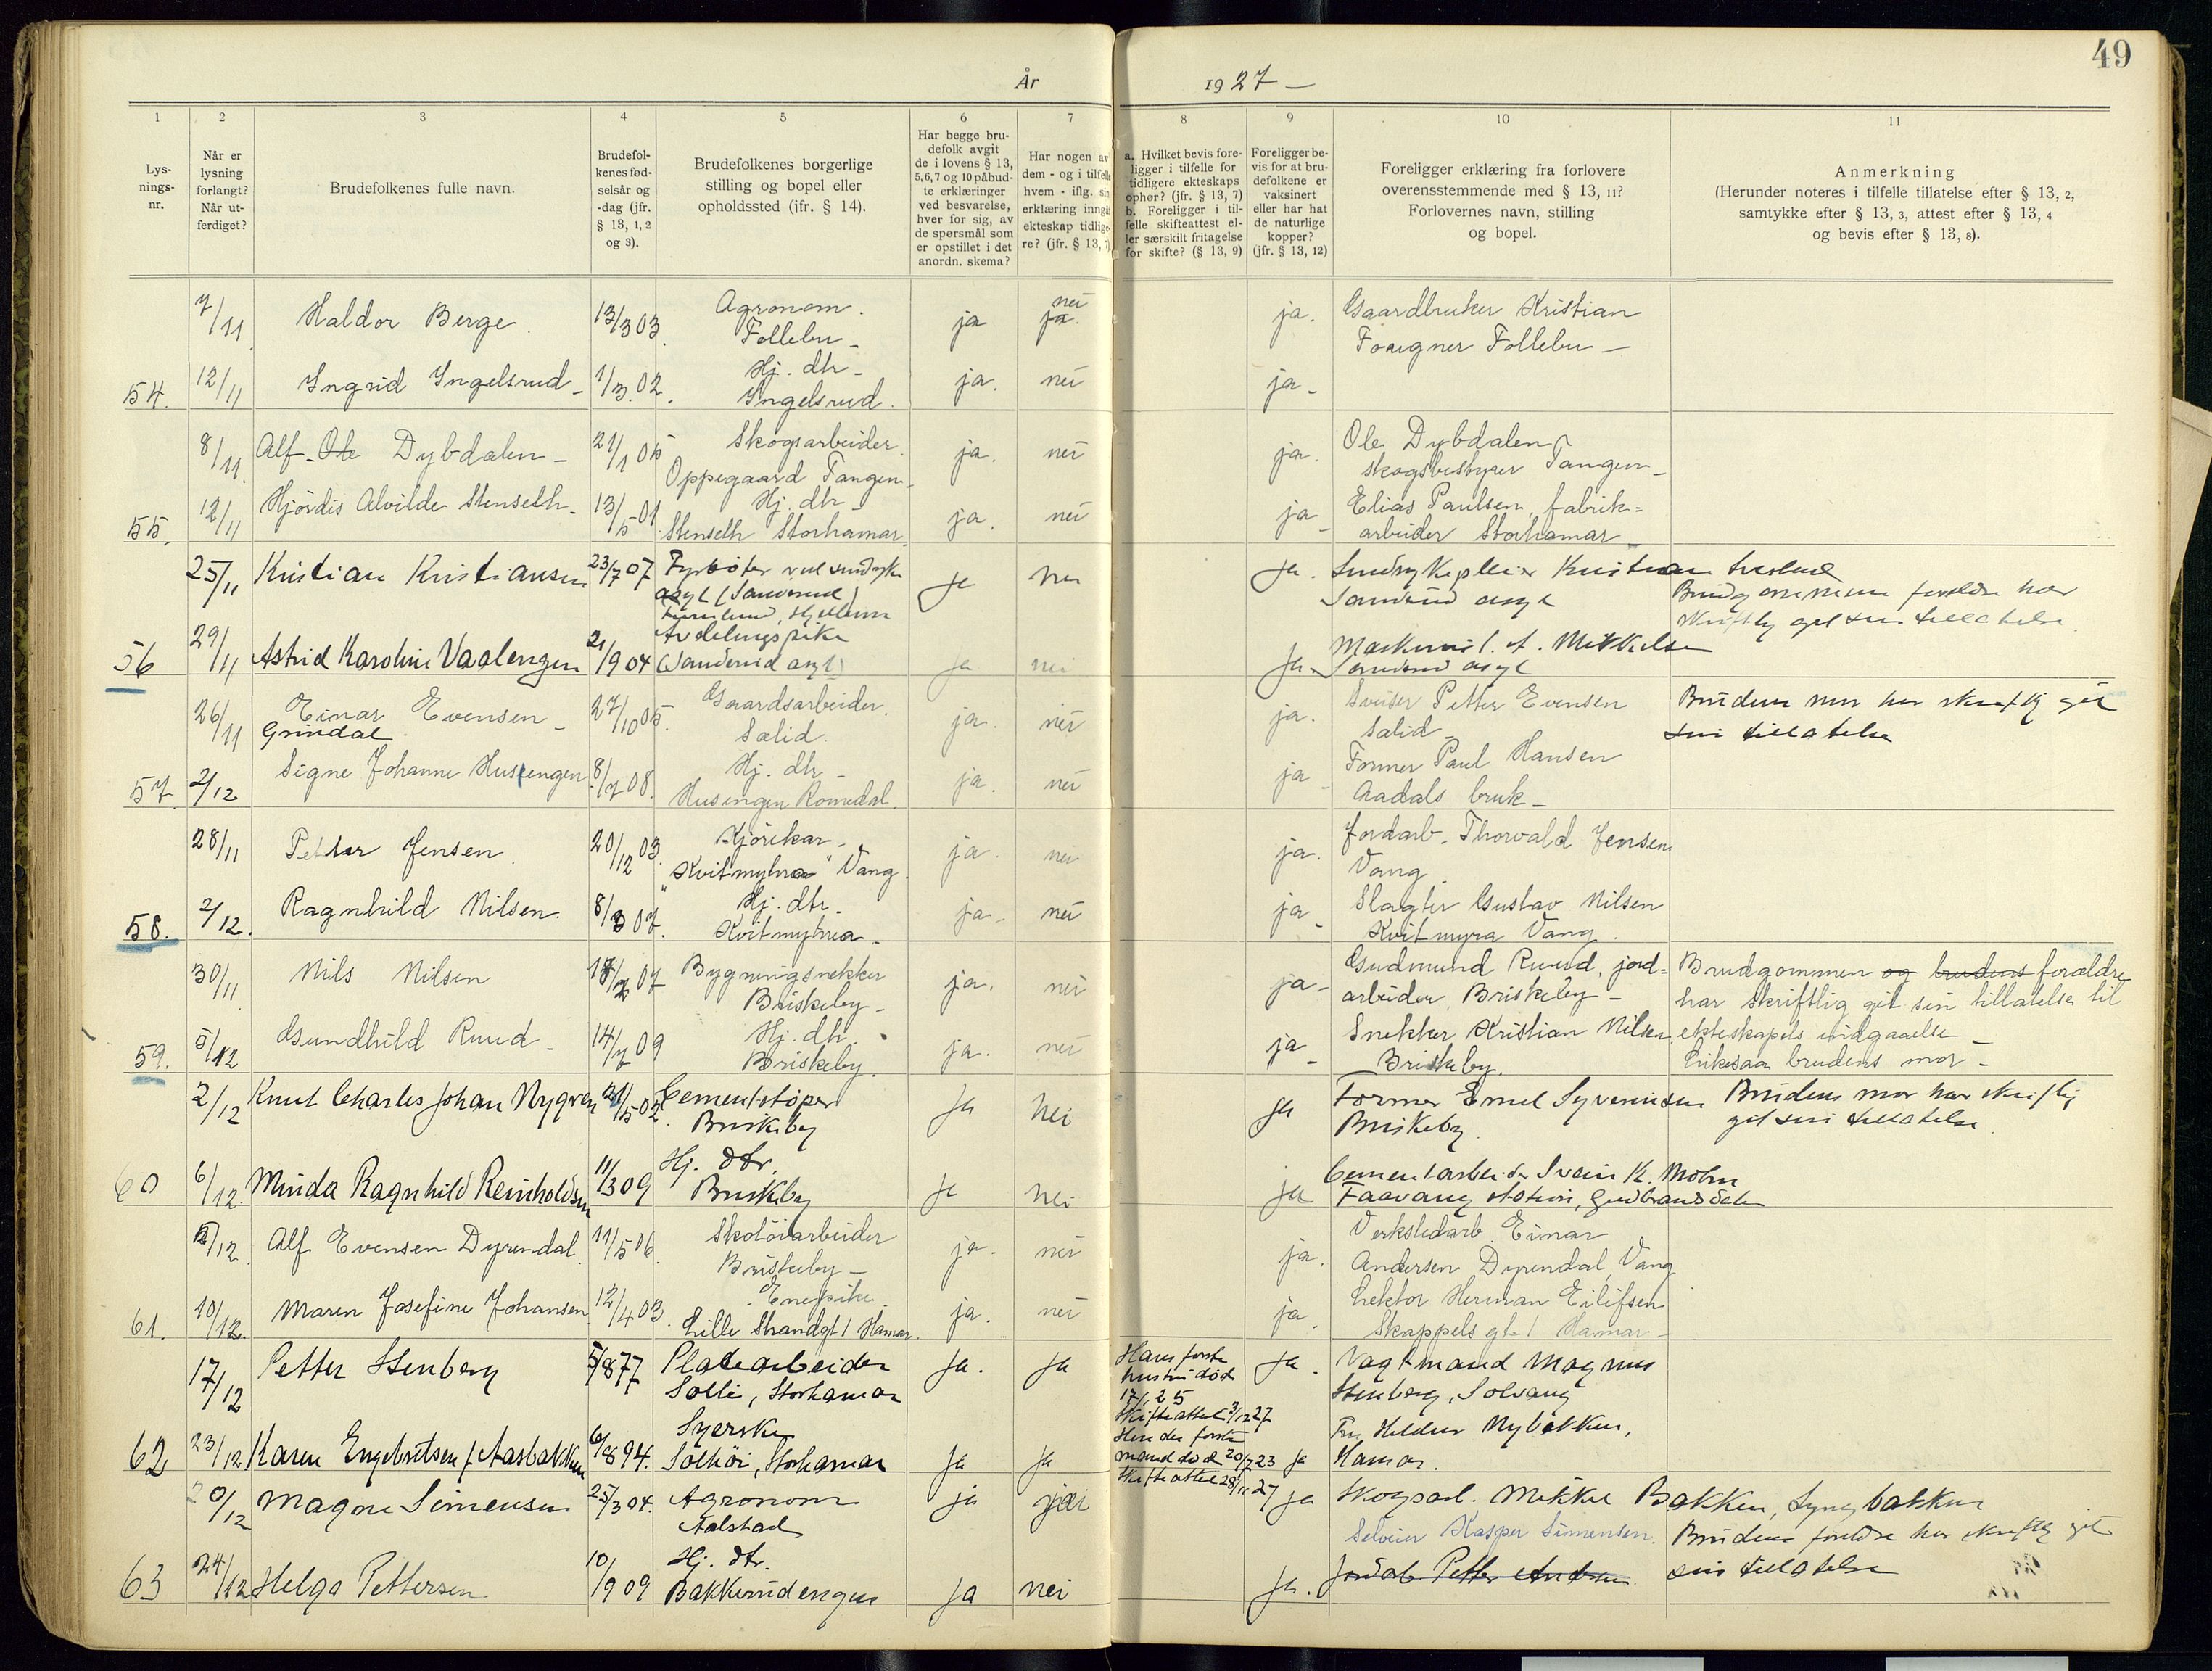 49
År 1927 —
1 2 3 4 5 6 7 8 9 10 11
Lys-
nings-
nr.
Når er
lysning
forlangt?
Når ut-
ferdiget?
Brudefolkenes fulle navn.
Brudefol-
kenes fød-
selsår og
-dag (jfr.
§ 13, 1, 2
og 3).
Brudefolkenes borgerlige
stilling og bopel eller
opholdssted (jfr. § 14).
Har begge bru-
defolk avgit
de i lovens § 13,
5, 6, 7 og 10 påbud-
te erklæringer
ved besvarelse,
hver for sig, av
de spørsmål som
er opstillet i det
anordn. skema?
Har nogen av
dem - og i tilfelle
hvem - iflg. sin
erklæring inngåt
ekteskap tidlige-
re? (jfr. § 13, 7)
a. Hvilket bevis fore-
ligger i tilfelle for
tidligere ekteskaps
ophør? (jfr. § 13, 7)
b. Foreligger i til-
felle skifteattest el-
ler særskilt fritagelse
for skifte? (§ 13, 9)
Foreligger be-
vis for at bru-
defolkene er
vaksinert
eller har hat
de naturlige
kopper?
(jfr. § 13, 12)
Foreligger erklæring fra forlovere
overensstemmende med § 13, 11?
Forlovernes navn, stilling
og bopel.
Anmerkning
(Herunder noteres i tilfelle tillatelse efter § 13, 2,
samtykke efter § 13, 3, attest efter § 13, 4
og bevis efter § 13, 8).
7/11 Haldor Berge. 13/3 03. Agronom. Follebu - ja nei ja. ja. Gaardbruker Kristian
Follebu —
54. 12/11 Ingrid Ingelsrud - 1/3 02. Hj. dtr - Ingelsrud. ja. nei ja -
8/11 Alf Ole Dybdalen - 21/1 05 Skogsarbeider. Oppegaard Tangen - ja. nei ja. Ole Dybdalen
skogsbestyrer Tangen -
55. 12/11 Hjørdis Alvilde Stenseth - 13/5 01. Hj. dtr - Stenseth Storhamar. ja. nei ja - Elias Paulsen, fabrik=
arbeider Storhamar -
25/11 Kristian Kristiansen 23/7 07 Fyrbøter ved sindsyke
asyl (Sanderud)
ja nei ja. Sindsykepleier Kristian
Sanderud asyl
Brudgommens foreldre har
skriftlig git sin tillatelse.
56 29/11 Astrid Karoline Vaalengen 21/9 04 Avdelingspike
(Sanderud asyl) ja nei ja - Maskinist A. Mikkelsen
Sanderud asyl
26/11 Einar Evensen - 27/10 05. Gaardsarbeider.
Grindal Salid. ja. nei ja. Sveiser Petter Evensen
Salid - Brudens mor har skriftlig git
sin tillatelse
57. 2/12 Signe Johanne Husengen 8/7 08. Hj. dtr -
Husengen Romedal. ja. nei ja - Former Paul Hansen
Aadals bruk -
28/11 Petter Jensen. 20/12 03. Kjørekar -
"Kvitmyhra" Vang. ja. nei ja. Jordarb. Thorvald Jensen
Vang.
58. 2/12. Ragnhild Nilsen. 8/3 07. Hj. dtr.
Kvitmyhra - ja - nei ja - Slagter Gustav Nilsen
Kvitmyra Vang.
30/11 Nils Nilsen 18/7 07 Bygningsnekker
Briskeby - ja. nei ja - Gudmund Ruud, jord=
arbeider Briskeby - Brudgommen og brudens forældre
har skriftlig git sin tillatelse til
59. 5/12 Gundhild Ruud - 14/7 09 Hj. dtr.
Briskeby. ja. nei ja - Snekker Kristian Nilsen
Briskeby. ekteskapets indgaaelse -
Likesaa brudens mor -
2/12 Knut Charles Johan Nygren 21/5 02. Cementstøper
Briskeby ja nei ja Former Emil Syversen
Briskeby. Brudens mor har skriftlig
git sin tillatelse.
60 6/12. Minda Ragnhild Reinholdsen 11/3 09 Hj. dtr.
Briskeby ja nei ja Cementarbeider Svein K. Mohn
Faavang station, Gudbrandsdalen
/12. Alf Evensen Dyrendal. 11/5 06. Skotøiarbeider
Briskeby - ja. nei ja. Verkstedarb. Einar
Andersen Dyrendal, Vang
61. 10/12. Maren Josefine Johansen 12/4 03. Enepike.
Lille Strandgt 1 Hamar. ja. nei ja. Lektor Herman Eilifsen
Skappels gt 1 Hamar -
17/12 Petter Stenberg 5/8 77 Platearbeider
Solli, Storhamar ja. ja Hans første
hustru død
17/1 25
Skifteattest 3/12 27 ja. Vagtmand Magnus
Stenberg, Solvang
62 23/12 Karen Engebretsen f. Aasbakken 6/8 94. Syerske
Solhøi, Storhamar ja ja Hendes første
mand død 20/7 23
Skifteattest 28/11 27 ja Fru Hilda Nybakken,
Hamar.
20/12 Magne Simensen 25/3 04. Agronom
Aalstad ja nei ja Skogsarb. Mikkel Bakken, Lyngbakken
Selveier Kasper Simensen. Brudens foreldre har skriftlig git
sin tillatelse
63 24/12 Helga Pettersen 10/9 09 Hj. dtr.
Bakkerudengen ja nei ja. Jordarb. Petter Andersen